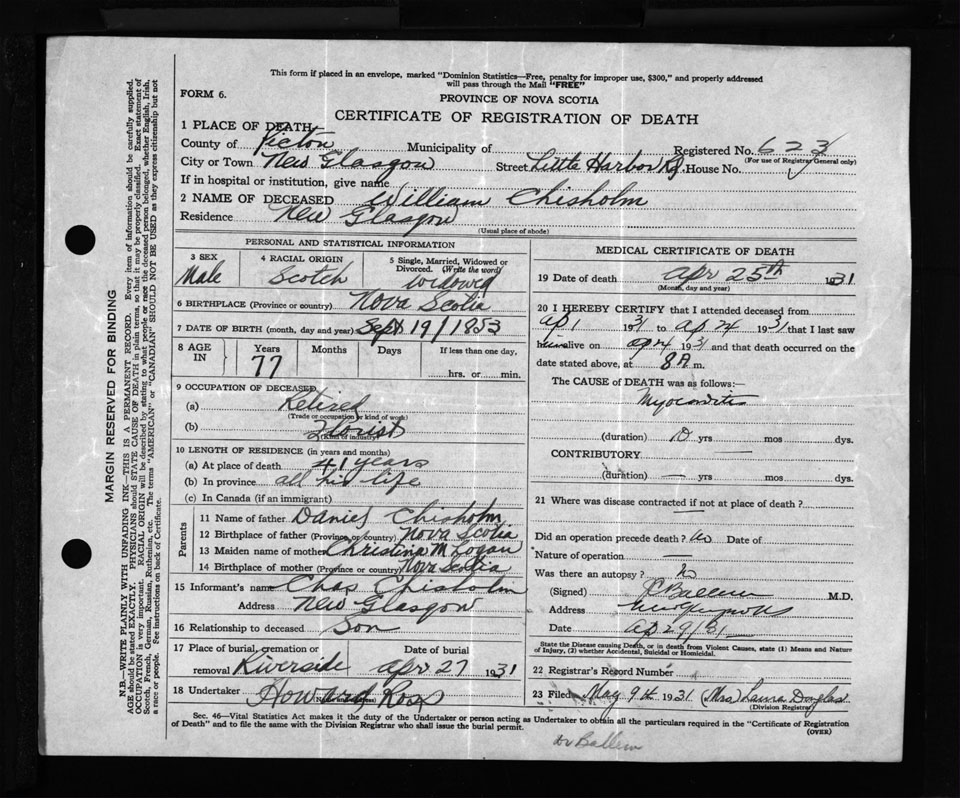 This form if placed in an envelope, marked "Dominion Statistics—Free, penalty for improper use, $300," and properly addressed
will pass through the Mail "FREE"
FORM 6.
PROVINCE OF NOVA SCOTIA
CERTIFICATE OF REGISTRATION OF DEATH
1 PLACE OF DEATH
County of Pictou Municipality of Registered No. 623
(For use of Registrar General only)
City or Town New Glasgow Street Little Harbor Rd. House No.
If in hospital or institution, give name
2 NAME OF DECEASED William Chisholm
Residence New Glasgow
(Usual place of abode)
MARGIN RESERVED FOR BINDING
N.B.—WRITE PLAINLY WITH UNFADING INK—THIS IS A PERMANENT RECORD. Every item of information should be carefully supplied.
AGE should be stated EXACTLY. PHYSICIANS should STATE CAUSE OF DEATH in plain terms, so that it may be properly classified. Exact statement of
OCCUPATION is very important. RACIAL ORIGIN will be described by stating to what people or race the deceased person belonged, whether English, Irish,
Scotch, French, German, Russian, Ruthenian, etc. The terms "AMERICAN" or "CANADIAN" SHOULD NOT BE USED as they express citizenship but not
a race or people. See instructions on back of Certificate.
PERSONAL AND STATISTICAL INFORMATION
3 SEX
Male
4 RACIAL ORIGIN
Scotch
5 Single, Married, Widowed or
Divorced. (Write the word)
widowed
6 BIRTHPLACE (Province or country) Nova Scotia
7 DATE OF BIRTH (month, day and year) Sept 19/1853
8 AGE IN
Years Months Days If less than one day,
77
hrs. or min.
9 OCCUPATION OF DECEASED
(a) Retired
(Trade or occupation or kind of work)
(b) Florist
(Kind of industry)
10 LENGTH OF RESIDENCE (in years and months)
(a) At place of death 41 years
(b) In province all his life
(c) In Canada (if an immigrant)
Parents
11 Name of father Daniel Chisholm
12 Birthplace of father (Province or country) Nova Scotia
13 Maiden name of mother Christina M Logan
14 Birthplace of mother (Province or country) Nova Scotia
15 Informant's name Chas Chisholm
Address New Glasgow
16 Relationship to deceased Son
17 Place of burial, cremation or Date of burial
removal Riverside Apr 27 1931
18 Undertaker Howard Ross
MEDICAL CERTIFICATE OF DEATH
19 Date of death Apr 25th 1931
(Month, day and year)
20 I HEREBY CERTIFY that I attended deceased from
Ap 1 1931 to Ap 24 1931 that I last saw
him alive on Ap 24 1931 and that death occurred on the
date stated above, at 8 A m.
The CAUSE OF DEATH was as follows:—
Myocarditis
(duration) 10 yrs mos dys.
CONTRIBUTORY —
(duration) — yrs mos dys.
21 Where was disease contracted if not at place of death?
—
Did an operation precede death? No Date of
Nature of operation —
Was there an autopsy? No
(Signed) Ballem M.D.
Address
Date Ap 29/31
State the Disease causing Death, or in death from Violent Causes, state (1) Means and Nature
of Injury, (2) whether Accidental, Suicidal or Homicidal.
22 Registrar's Record Number
23 Filed May 9th 1931 (Mrs) Laura Douglas
(Division Registrar)
Sec. 46—Vital Statistics Act makes it the duty of the Undertaker or person acting as Undertaker to obtain all the particulars required in the "Certificate of Registration
of Death" and to file the same with the Division Registrar who shall issue the burial permit.
(OVER)
Dr Ballem